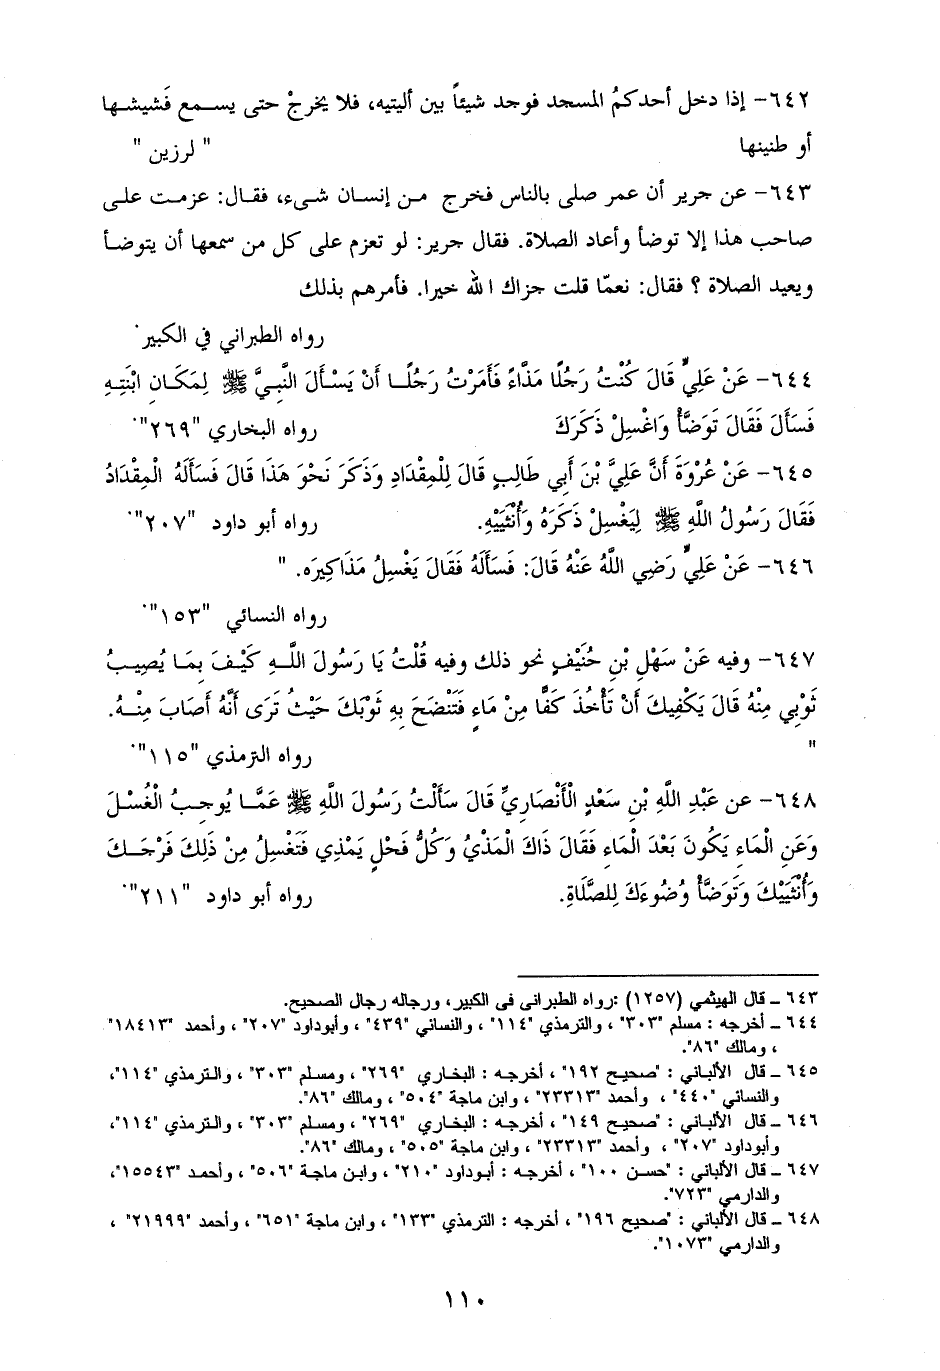 ٦٤٢- إذا دخل أحدكمُ المسجد فوجد شيئاً بين أليتيه، فلا يخرجْ حتى يسمع فَشيشها
أو طنينها " لرزين "
٦٤٣- عن جرير أن عمر صلى بالناس فخرج من إنسان شيء، فقال: عزمت على
صاحب هذا إلا توضأ وأعاد الصلاة. فقال جرير: لو تعزم على كل من سمعها أن يتوضأ
ويعيد الصلاة ؟ فقال: نعمّا قلت جزاك الله خيرا. فأمرهم بذلك
رواه الطبراني في الكبير.
٦٤٤- عَنْ عَلِيٍّ قَالَ كُنْتُ رَجُلًا مَذَّاءً فَأَمَرْتُ رَجُلًا أَنْ يَسْأَلَ النَّبِيَّ ﷺ لِمَكَانِ ابْنَتِهِ
فَسَأَلَ فَقَالَ تَوَضَّأْ وَاغْسِلْ ذَكَرَكَ رواه البخاري "٢٦٩".
٦٤٥- عَنْ عُرْوَةَ أَنَّ عَلِيَّ بْنَ أَبِي طَالِبٍ قَالَ لِلْمِقْدَادِ وَذَكَرَ نَحْوَ هَذَا قَالَ فَسَأَلَهُ الْمِقْدَادُ
فَقَالَ رَسُولُ اللَّهِ ﷺ لِيَغْسِلْ ذَكَرَهُ وَأُنْثَيَيْهِ. رواه أبو داود "٢٠٧".
٦٤٦- عَنْ عَلِيٍّ رَضِي اللَّهُ عَنْهُ قَالَ: فَسَأَلَهُ فَقَالَ يَغْسِلُ مَذَاكِيرَه. "
رواه النسائي "١٥٣".
٦٤٧- وفيه عَنْ سَهْلِ بْنِ حُنَيْفٍ نحو ذلك وفيه قُلْتُ يَا رَسُولَ اللَّهِ كَيْفَ بِمَا يُصِيبُ
ثَوْبِي مِنْهُ قَالَ يَكْفِيكَ أَنْ تَأْخُذَ كَفًّا مِنْ مَاءٍ فَتَنْضَحَ بِهِ ثَوْبَكَ حَيْثُ تَرَى أَنَّهُ أَصَابَ مِنْهُ.
" رواه الترمذي "١١٥".
٦٤٨- عن عَبْدِ اللَّهِ بْنِ سَعْدٍ الْأَنْصَارِيِّ قَالَ سَأَلْتُ رَسُولَ اللَّهِ ﷺ عَمَّا يُوجِبُ الْغُسْلَ
وَعَنِ الْمَاءِ يَكُونُ بَعْدَ الْمَاءِ فَقَالَ ذَاكَ الْمَذْيُ وَكُلُّ فَحْلٍ يَمْذِي فَتَغْسِلُ مِنْ ذَلِكَ فَرْجَكَ
وَأُنْثَيَيْكَ وَتَوَضَّأْ وُضُوءَكَ لِلصَّلَاةِ. رواه أبو داود "٢١١".
٦٤٣ ـ قال الهيثمي (١٢٥٧) :رواه الطبراني في الكبير، ورجاله رجال الصحيح.
٦٤٤ ـ أخرجه : مسلم "٣٠٣" ، والترمذي "١١٤" ، والنسائي "٤٣٩" ، وأبوداود "٢٠٧" ، وأحمد "١٨٤١٣"
، ومالك "٨٦".
٦٤٥ ـ قال الألباني : "صحيح ١٩٢" ، أخرجه : البخاري "٢٦٩" ، ومسلم "٣٠٣" ، والترمذي "١١٤"،
والنسائي "٤٤٠" ، وأحمد "٢٣٣١٣" ، وابن ماجة "٥٠٤" ، ومالك "٨٦".
٦٤٦ ـ قال الألباني : "صحيح ١٤٩" ، أخرجه : البخاري "٢٦٩" ، ومسلم "٣٠٣" ، والترمذي "١١٤"،
وأبوداود "٢٠٧" ، وأحمد "٢٣٣١٣" ، وابن ماجة "٥٠٥" ، ومالك "٨٦".
٦٤٧ ـ قال الألباني : "حسن ١٠٠" ، أخرجه : أبوداود "٢١٠" ، وابن ماجة "٥٠٦" ، وأحمد "١٥٥٤٣"،
والدارمي "٧٢٣".
٦٤٨ ـ قال الألباني : "صحيح ١٩٦" ، أخرجه : الترمذي "١٣٣" ، وابن ماجة "٦٥١" ، وأحمد "٢١٩٩٩" ،
والدارمي "١٠٧٣".
١١٠